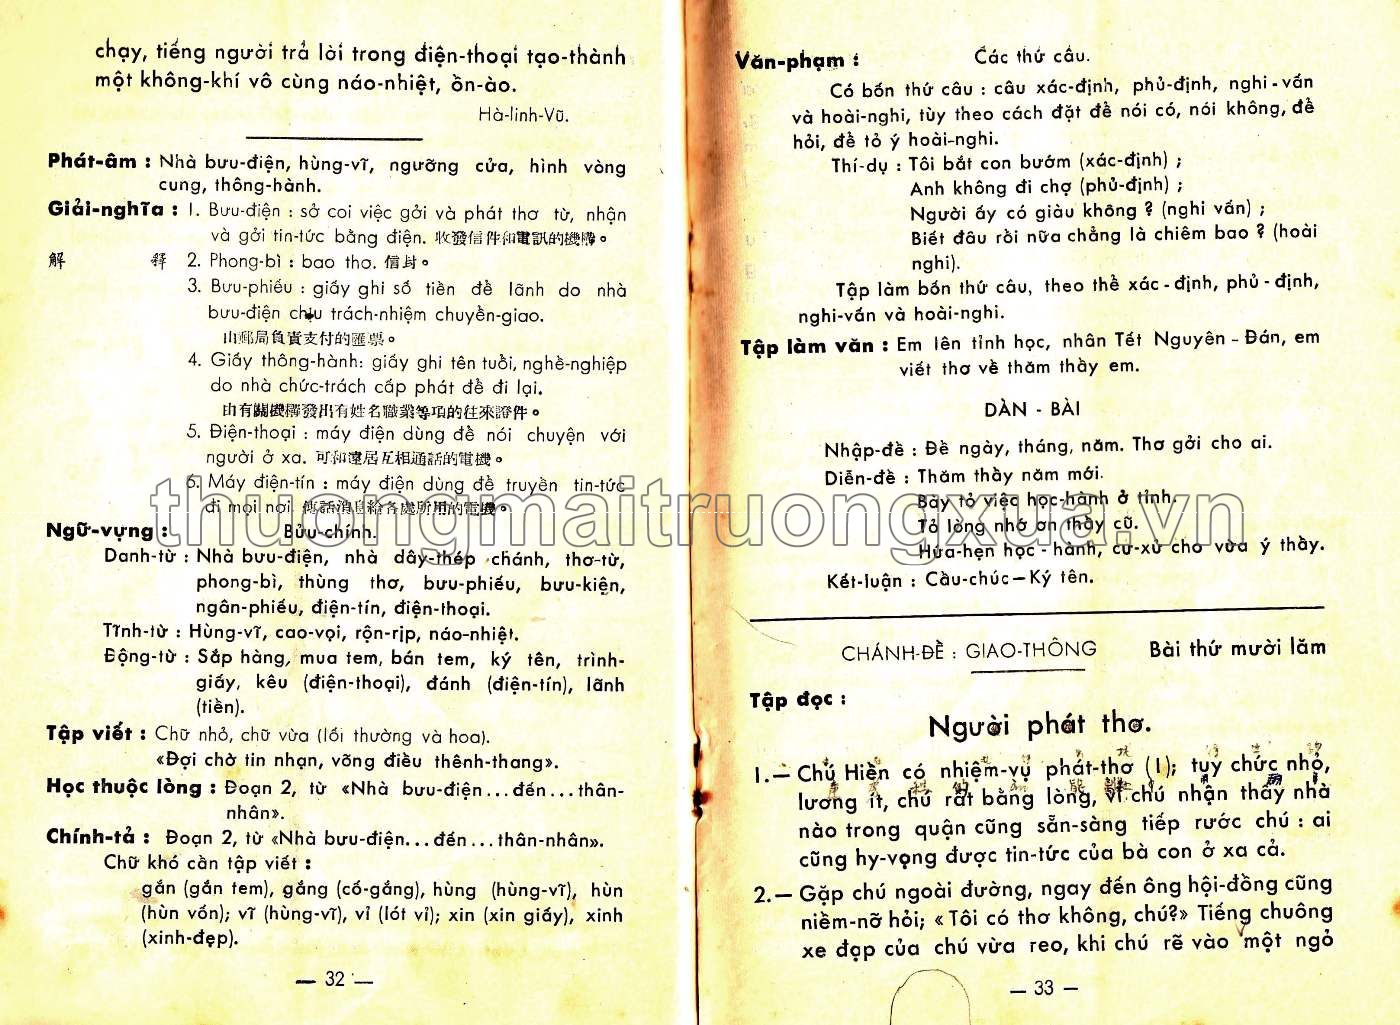 chạy, tiếng người trả lời trong điện-thoại tạo-thành
một không-khí vô cùng náo-nhiệt, ồn-ào.
Hà-linh-Vũ.
Phát-âm : Nhà bưu-điện, hùng-vĩ, ngưỡng cửa, hình vòng
cung, thông-hành.
Giải-nghĩa : 1. Bưu-điện : sở coi việc gởi và phát thơ từ, nhận
và gởi tin-tức bằng điện. 收發信件和電訊的機構。
解 釋 2. Phong-bì : bao thơ. 信封。
3. Bưu-phiếu : giấy ghi số tiền để lãnh do nhà
bưu-điện chịu trách-nhiệm chuyển-giao.
由郵局負責支付的匯票。
4. Giấy thông-hành: giấy ghi tên tuổi, nghề-nghiệp
do nhà chức-trách cấp phát để đi lại.
由有關機構發出有姓名職業等項的往來證件。
5. Điện-thoại : máy điện dùng để nói chuyện với
người ở xa. 可和遠居互相通話的電機。
6. Máy điện-tín : máy điện dùng để truyền tin-tức
đi mọi nơi. 傳話消息給各處所用的電機。
thuongmaitruongxua.vn
Ngữ-vựng : Bưu-chính.
Danh-từ : Nhà bưu-điện, nhà dây-thép chánh, thơ-từ,
phong-bì, thùng thơ, bưu-phiếu, bưu-kiện,
ngân-phiếu, điện-tín, điện-thoại.
Tĩnh-từ : Hùng-vĩ, cao-vọi, rộn-rịp, náo-nhiệt.
Động-từ : Sắp hàng, mua tem, bán tem, ký tên, trình-
giấy, kêu (điện-thoại), đánh (điện-tín), lãnh
(tiền).
Tập viết : Chữ nhỏ, chữ vừa (lối thường và hoa).
«Đợi chờ tin nhạn, võng điều thênh-thang».
Học thuộc lòng : Đoạn 2, từ «Nhà bưu-điện...đến...thân-
nhân».
Chính-tả : Đoạn 2, từ «Nhà bưu-điện...đến...thân-nhân».
Chữ khó cần tập viết :
gắn (gắn tem), gắng (cố-gắng), hùng (hùng-vĩ), hùn
(hùn vốn); vĩ (hùng-vĩ), vỉ (lót vỉ); xin (xin giấy), xinh
(xinh-đẹp).
— 32 —
Văn-phạm : Các thứ câu.
Có bốn thứ câu : câu xác-định, phủ-định, nghi-vấn
và hoài-nghi, tùy theo cách đặt để nói có, nói không, để
hỏi, để tỏ ý hoài-nghi.
Thí-dụ : Tôi bắt con bướm (xác-định) ;
Anh không đi chợ (phủ-định) ;
Người ấy có giàu không ? (nghi vấn) ;
Biết đâu rồi nữa chẳng là chiêm bao ? (hoài
nghi).
Tập làm bốn thứ câu, theo thể xác-định, phủ-định,
nghi-vấn và hoài-nghi.
Tập làm văn : Em lên tỉnh học, nhân Tết Nguyên-Đán, em
viết thơ về thăm thầy em.
DÀN - BÀI
Nhập-đề : Đề ngày, tháng, năm. Thơ gởi cho ai.
Diễn-đề : Thăm thầy năm mới.
Bày tỏ việc học-hành ở tỉnh.
Tỏ lòng nhớ ơn thầy cũ.
Hứa-hẹn học-hành, cư-xử cho vừa ý thầy.
Kết-luận : Cầu-chúc—Ký tên.
CHÁNH-ĐỀ : GIAO-THÔNG Bài thứ mười lăm
Tập đọc :
Người phát thơ.
1.— Chú Hiền có nhiệm-vụ phát-thơ (1); tuy chức nhỏ,
lương ít, chú rất bằng lòng, vì chú nhận thấy nhà
nào trong quận cũng sẵn-sàng tiếp rước chú : ai
cũng hy-vọng được tin-tức của bà con ở xa cả.
2.— Gặp chú ngoài đường, ngay đến ông hội-đồng cũng
niềm-nỡ hỏi; «Tôi có thơ không, chú?» Tiếng chuông
xe đạp của chú vừa reo, khi chú rẽ vào một ngỏ
— 33 —